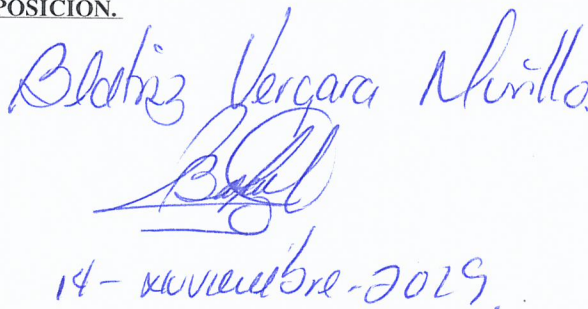 POSICIÓN.
Beatriz Vergara Murillo
14-noviembre-2019.